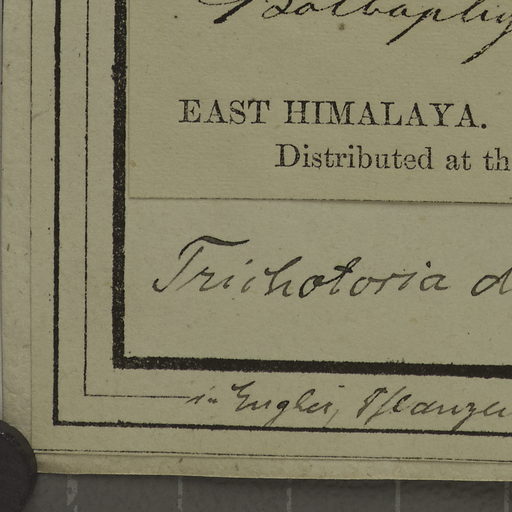 EAST HIMALAYA.
Distributed at th
Trichotosia d
in Engler, Pflanzen